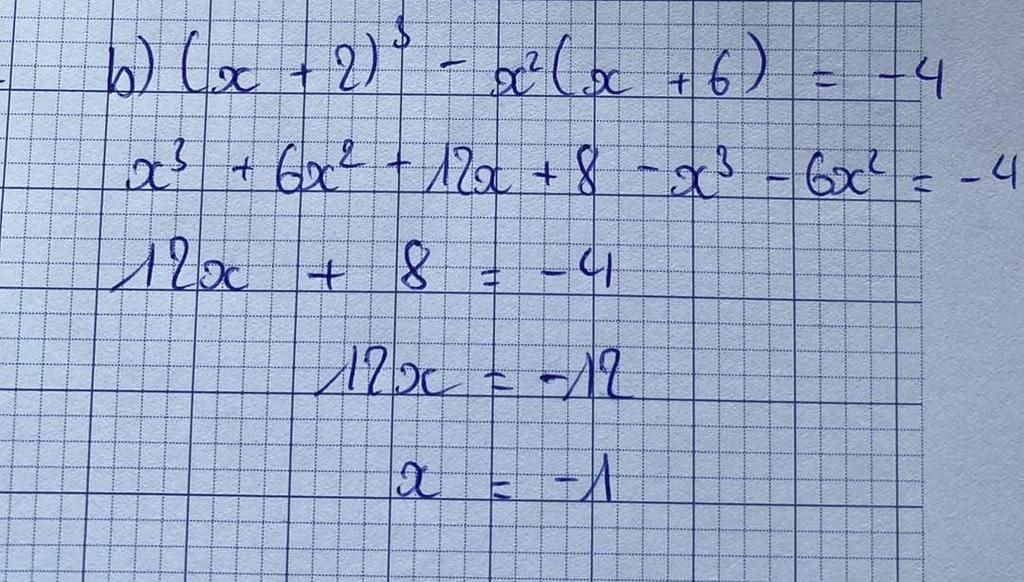 b) (x + 2)³ - x²(x + 6) = -4
x³ + 6x² + 12x + 8 - x³ - 6x² = -4
12x + 8 = -4
12x = -12
x = -1